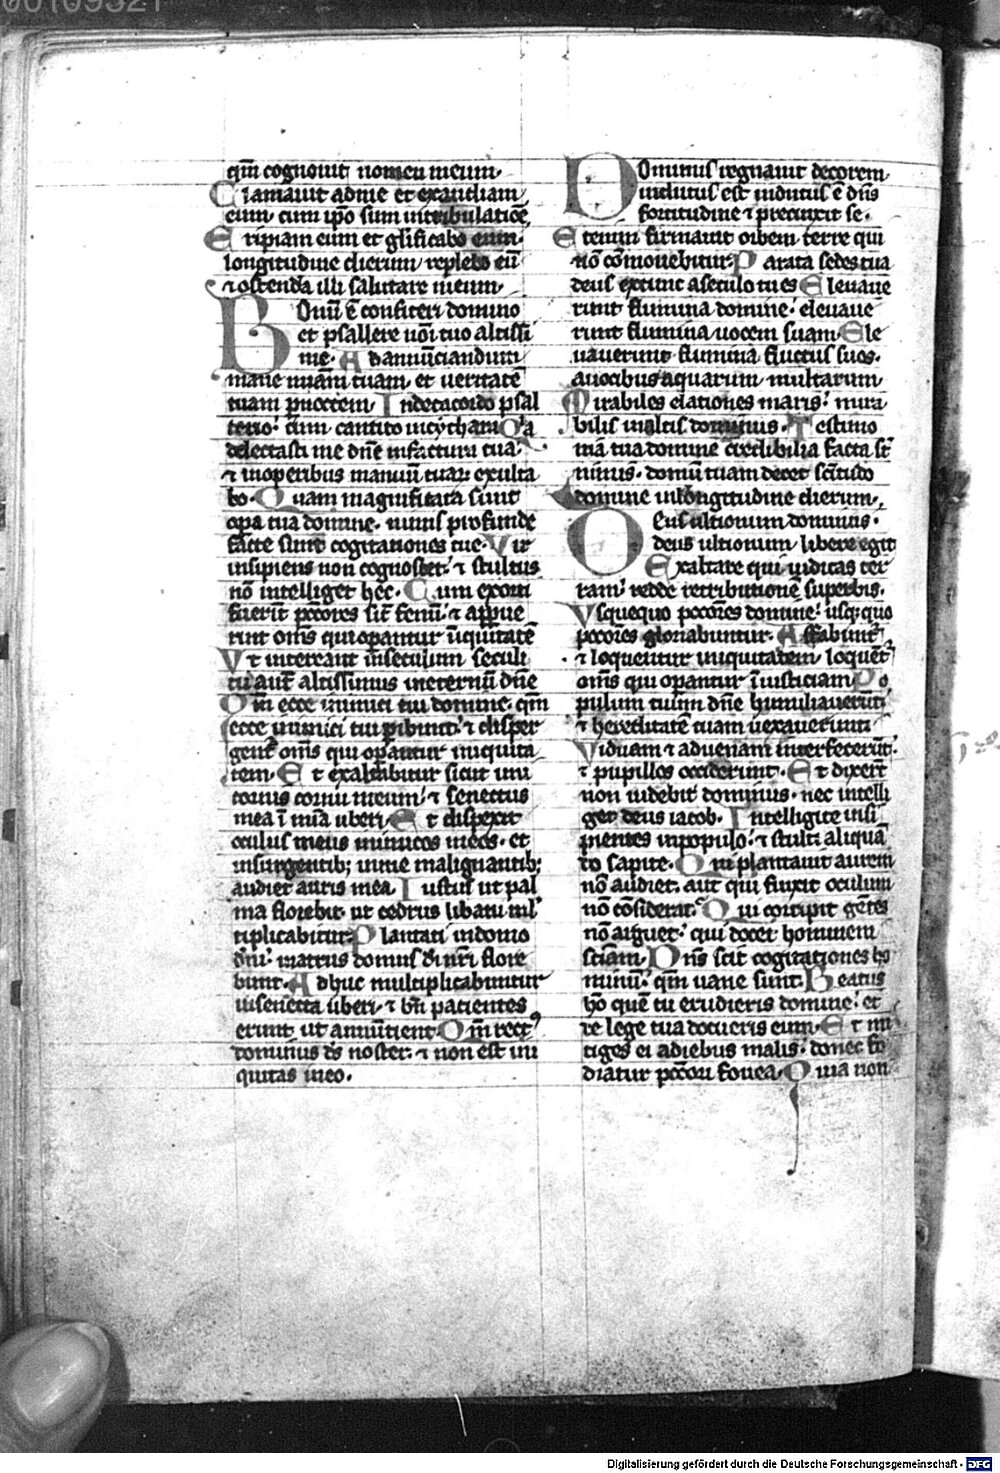 00109321
qm̄ cognouit nomen meum·
Clamauit adme et exaudiam
eum· cum ip̄o sum intribulatiōe
Eripiam eum et glīficabo eum·
longitudine dierum replebo eū
⁊ ostendā illi salutare meum·
Bonū ē confiteri domino
et psallere noı̄ tuo altissi
me· Adannūciandum
mane mīam tuam· et ueritatē
tuam p noctem· Indecacordo psal
terio· cum cantico incythara Qa
delectasti me dnē infactura tua·
⁊ inoperibus manuū tuaꝝ exulta
bo· Quam magnificata sunt
opa tua domine· nimis profunde
facte sunt cogitationes tue· Vir
insipiens non cognoscet· ⁊ stultus
nō intelliget hec· Cum exorti
fuerīt pccōres sic̄ fenū· ⁊ appue
rint om̄s qui opantur īiquitatē
Vt intereant inseculum seculi
tu aut̄ altissimus ineternū dnē
Qm̄ ecce inimici tui domine· qm̄
ecce inimici tui pibunt· ⁊ disper
gent̄ om̄s qui opantur iniquita
tem· Et exaltabitur sicut uni
cornis cornu meum· ⁊ senectus
mea ī mīa uberi· Et dispexit
oculus meus inimicos meos· et
insurgentib; inme malignantib;
audiet auris mea· Iustus ut pal
ma florebit· ut cedrus libani ml̄
tiplicabitur· Plantati indomo
dn̄i· inatriis domus di n̄ri flore
bunt· Adhuc multiplicabuntur
insenecta uberi· ⁊ bn̄ pacientes
erunt ut annūtient· Qm̄ rectꝰ
dominus ds̄ noster· ⁊ non est ini
quitas ineo·
Dominus regnauit decorem
indutus est indutus ē dn̄s
fortitudine ⁊ precinxit se·
Etenim firmauit orbem terre qui
nō cōmouebitur· Parata sedes tua
deus extunc aseculo tu es Eleuaue
runt flumina domine· eleuaue
runt flumina uocem suam· Ele
uauerunt flumina fluctus suos·
auocibus aquarum multarum
Mirabiles elationes maris· mira
bilis inaltis dominus· Testimo
nia tua domine credibilia facta st̄
nimis· domū tuam decet sc̄itudo
domine inlongitudine dierum·
Deus ultionum dominus·
deus ultionum libere egit
Exaltare qui iudicas ter
ram· redde retributionē superbis·
Vsquequo pccōres domine· usq; quo
pccōres gloriabuntur· Effabunt̄
⁊ loquentur iniquitatem· loquēt̄
om̄s qui opantur īiusticiam Po
pulum tuum dnē humiliauerūt
⁊ hereditatē tuam uexauerunt
Viduam ⁊ aduenam interfecerūt·
⁊ pupillos occiderunt· Et dixerūt
non uidebit dominus· nec intelli
get deus iacob· Intelligite insi
pientes inpopulo· ⁊ stulti aliquā
do sapite· Qui plantauit aurem
nō audiet· aut qui finxit oculum
nō cōsiderat· Qui corripit gētes
nō arguet· qui docet hominem
scīam· Dn̄s scit cogitationes ho
minū· qm̄ uane sunt· Beatus
hō quē tu erudieris domine· et
de lege tua docueris eum· Et mi
tiges ei adiebus malis· donec fo
diatur pccōri fouea· Quia non
Digitalisierung gefördert durch die Deutsche Forschungsgemeinschaft - DFG